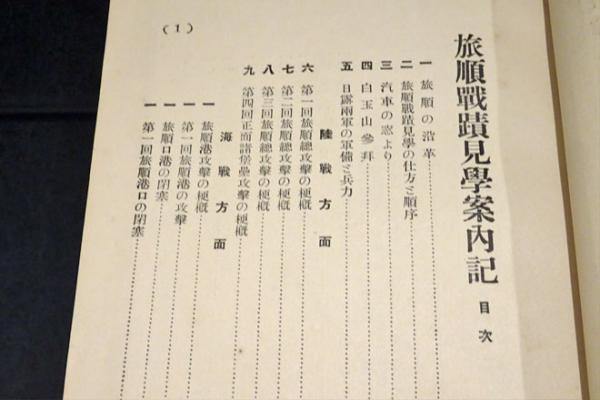 旅順戰蹟見學案內記 目次
一 旅順の沿革
二 旅順戰蹟見學の仕方と順序
三 汽車の窓より
四 白玉山參拜
五 日露兩軍の軍備と兵力
陸戰方面
六 第一回旅順總攻擊の梗概
七 第二回旅順總攻擊の梗概
八 第三回旅順總攻擊の梗概
九 第四回正面諸堡壘攻擊の梗概
海戰方面
一 旅順港攻擊の梗概
一 第一回旅順港の攻擊
一 旅順口港の閉塞
一 第一回旅順港口の閉塞
(1)